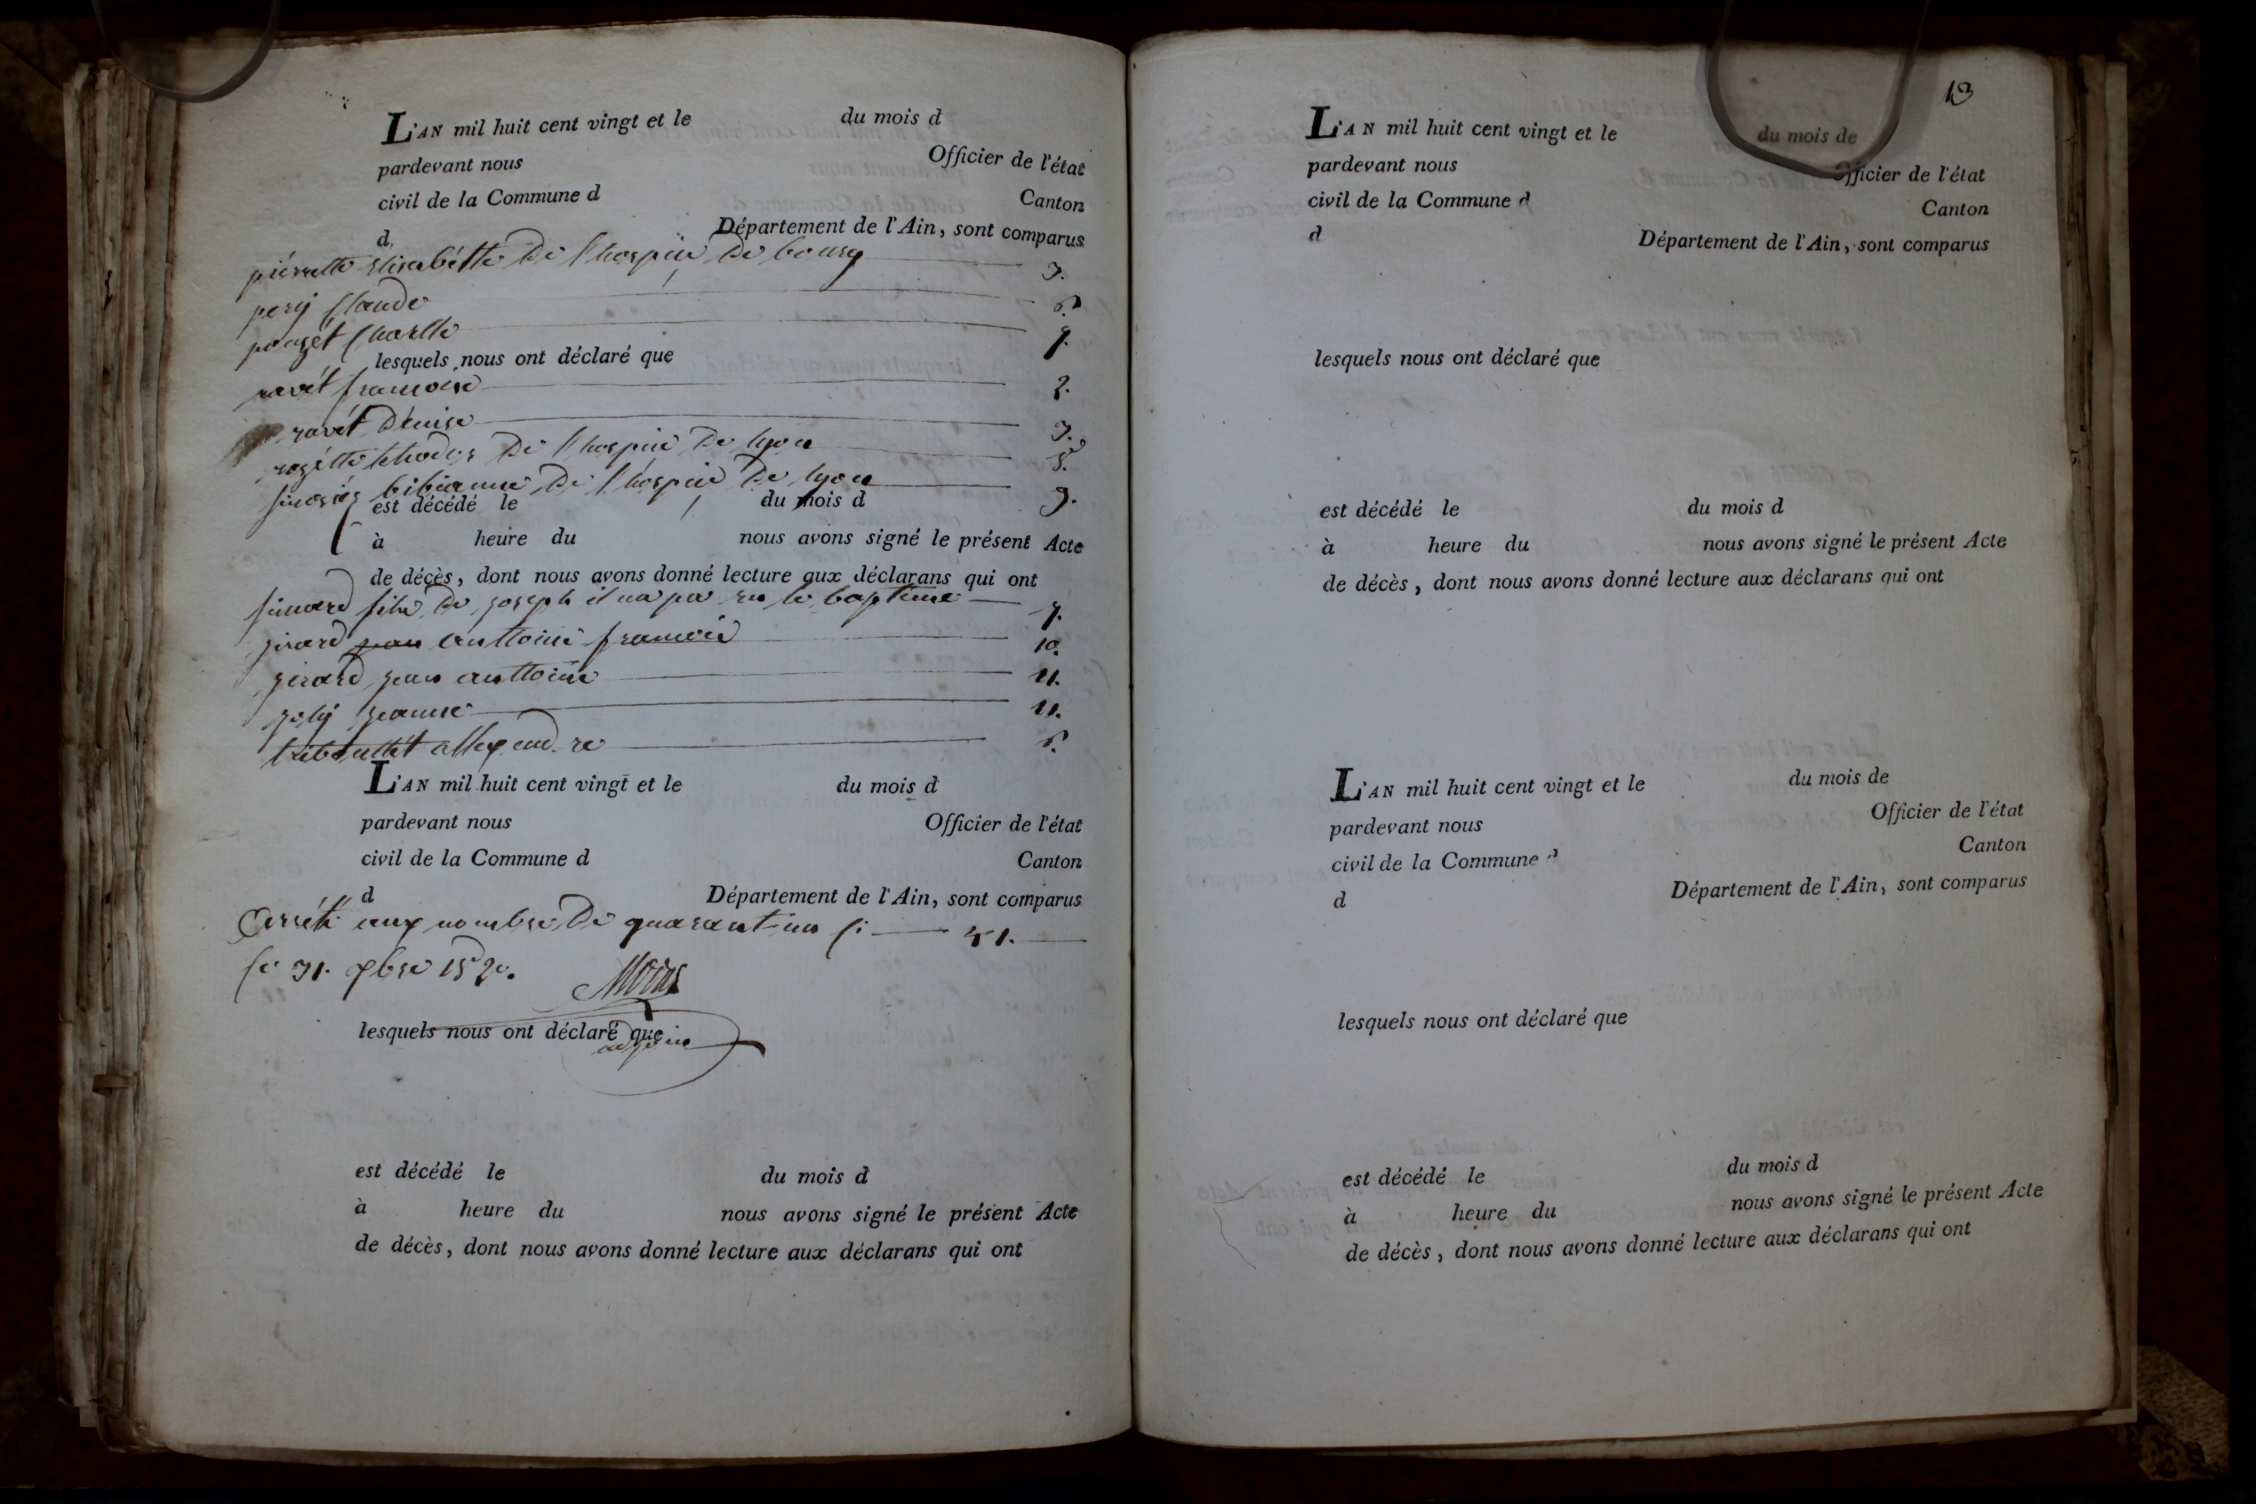 L'AN mil huit cent vingt et le du mois d
pardevant nous Officier de l'état
civil de la Commune d Canton
d Département de l'Ain, sont comparus
pierrette elisabétte de l'hospice de bourg 3.
pery Claude 6.
pouget Charlle 9.
lesquels nous ont déclaré que
ravét francoise 2.
ravét denise 3.
rozétte de l'hospice de lyon 5.
bibianne de l'hospice de lyon 3.
est décédé le du mois d
à heure du nous avons signé le présent Acte
de décès, dont nous avons donné lecture aux déclarans qui ont
fils de joseph il na pas eu le bapteme 7.
girard jean anttoine francois 10.
girard jean anttoine 11.
joly jeanne 11.
allexandre 6.
L'AN mil huit cent vingt et le du mois d
pardevant nous Officier de l'état
civil de la Commune d Canton
d Département de l'Ain, sont comparus
Arrété aux nombre de quarant-un Ci 41.
Ce 31. Xbre 1820.
lesquels nous ont déclaré que
est décédé le du mois d
à heure du nous avons signé le présent Acte
de décès, dont nous avons donné lecture aux déclarans qui ont
13
L'AN mil huit cent vingt et le du mois de
pardevant nous Officier de l'état
civil de la Commune d Canton
d Département de l'Ain, sont comparus
lesquels nous ont déclaré que
est décédé le du mois d
à heure du nous avons signé le présent Acte
de décès, dont nous avons donné lecture aux déclarans qui ont
L'AN mil huit cent vingt et le du mois de
pardevant nous Officier de l'état
civil de la Commune d Canton
d Département de l'Ain, sont comparus
lesquels nous ont déclaré que
est décédé le du mois d
à heure du nous avons signé le présent Acte
de décès, dont nous avons donné lecture aux déclarans qui ont